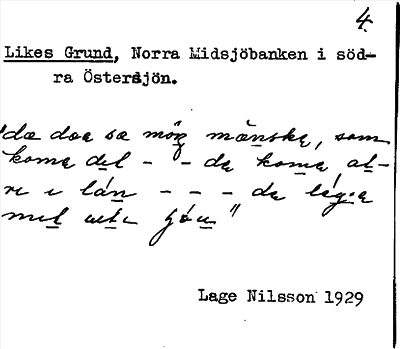 4.
Likes Grund, Norra Midsjöbanken i söd-
ra Östersjön.
"dæ doe sæ möŋ mænska, som
koma del - - da koma, at-
re i lán - - - da
med
Lage Nilsson 1929